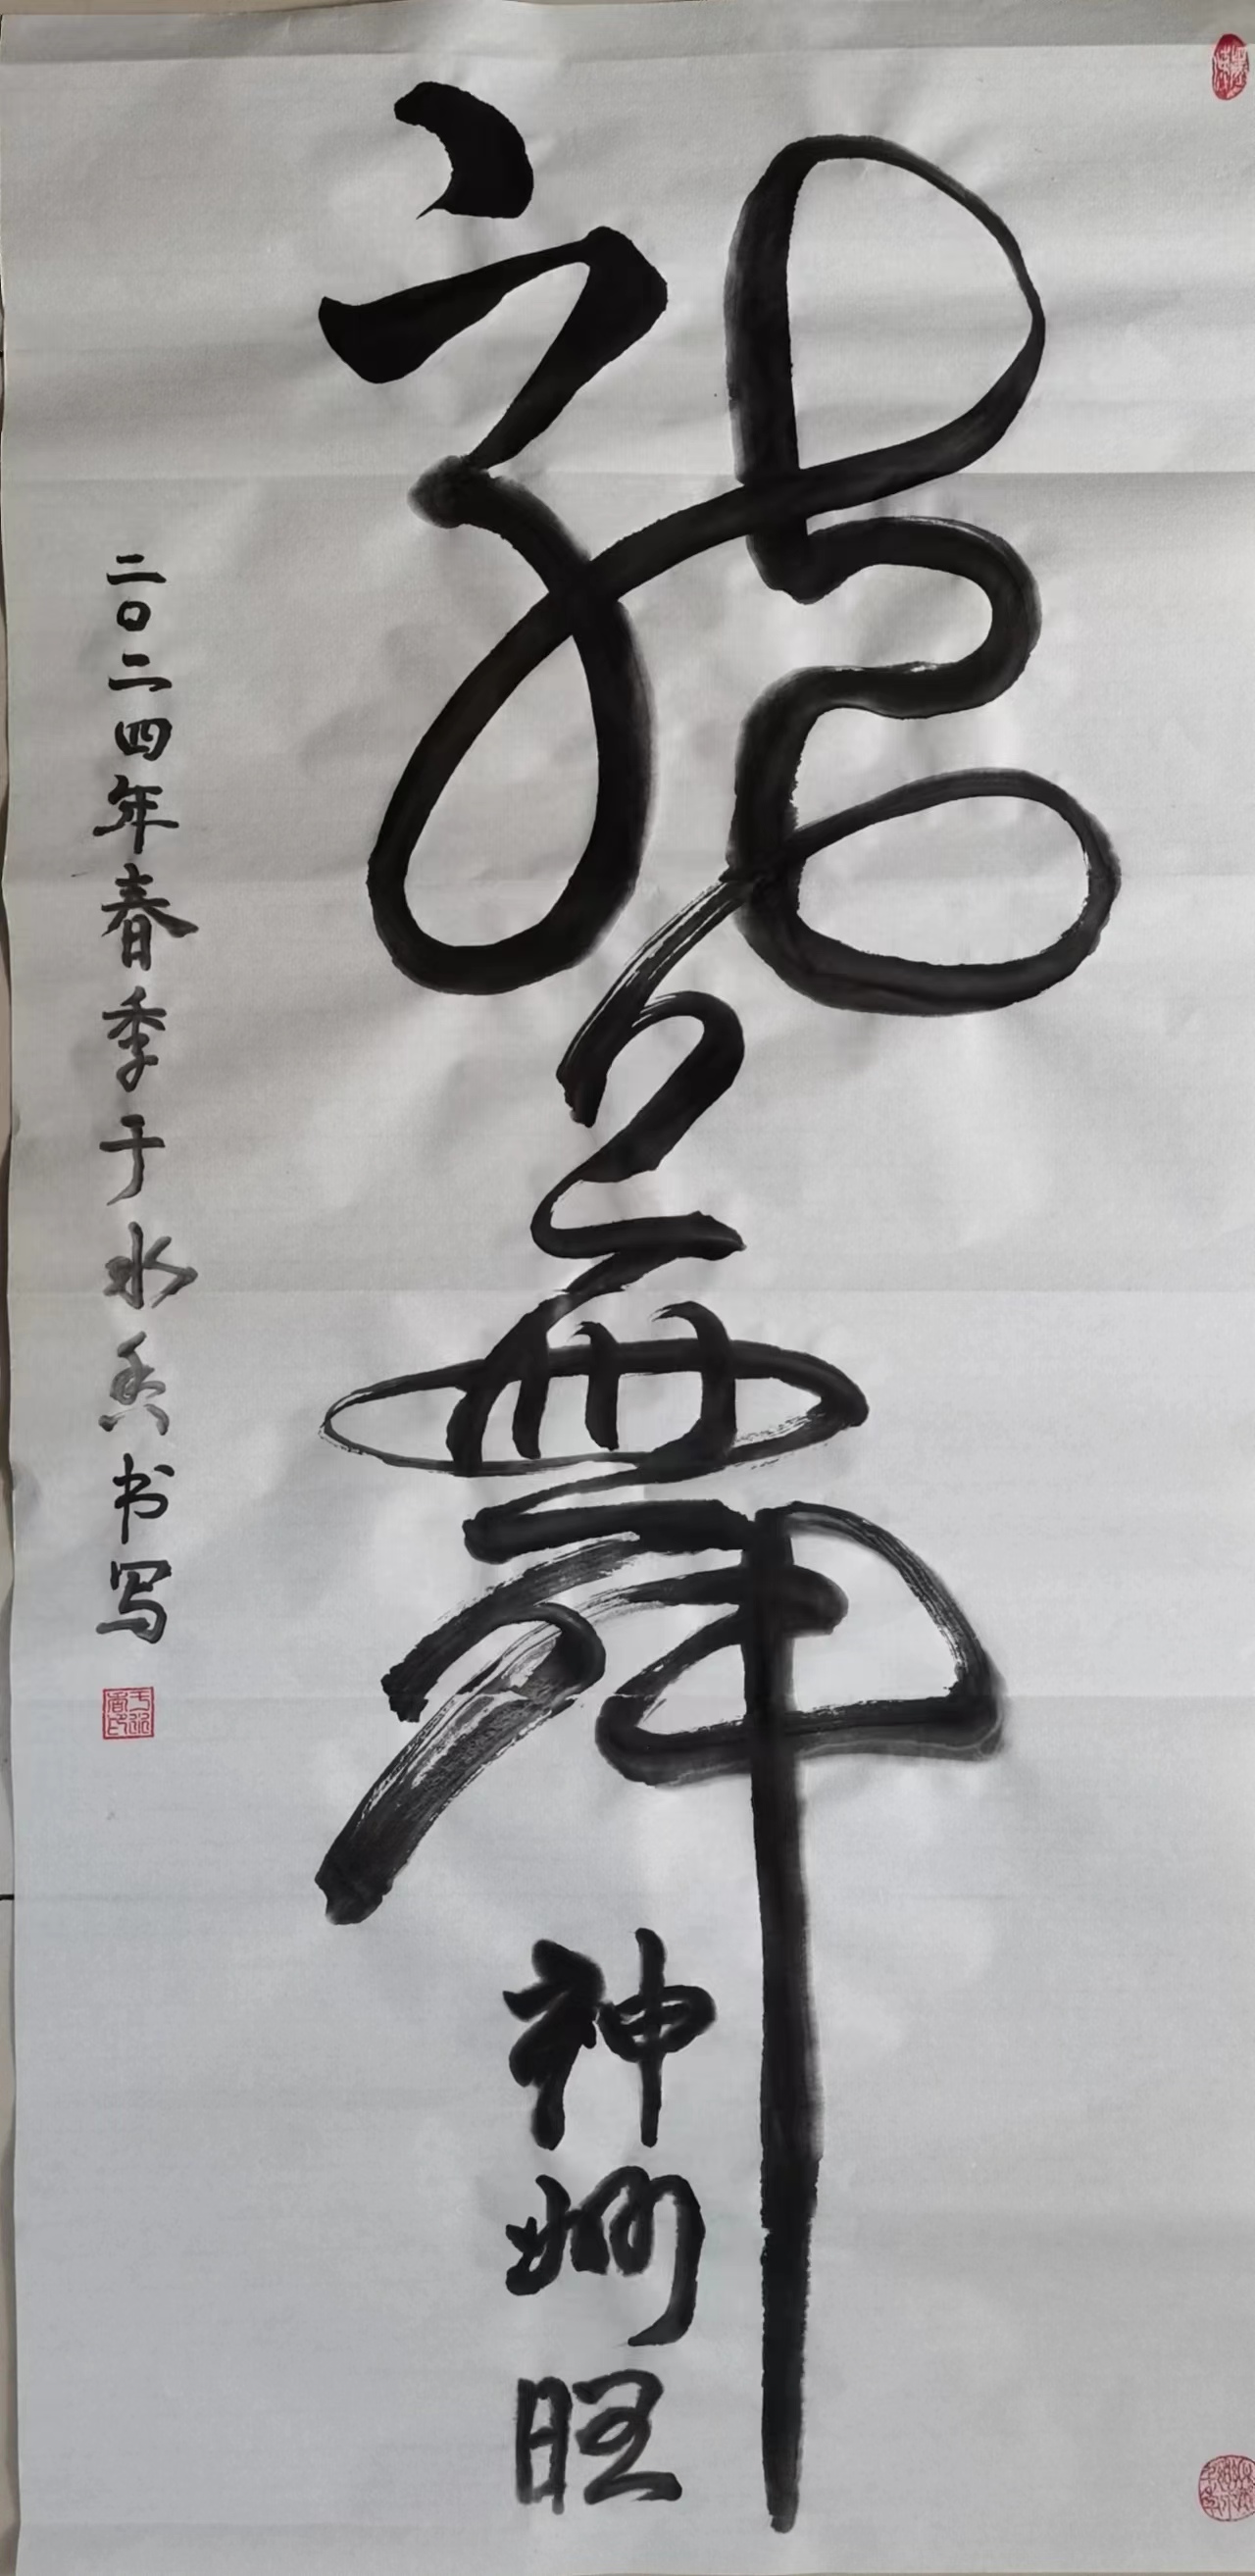 龍舞
神州旺
二〇二四年春季于水香书写